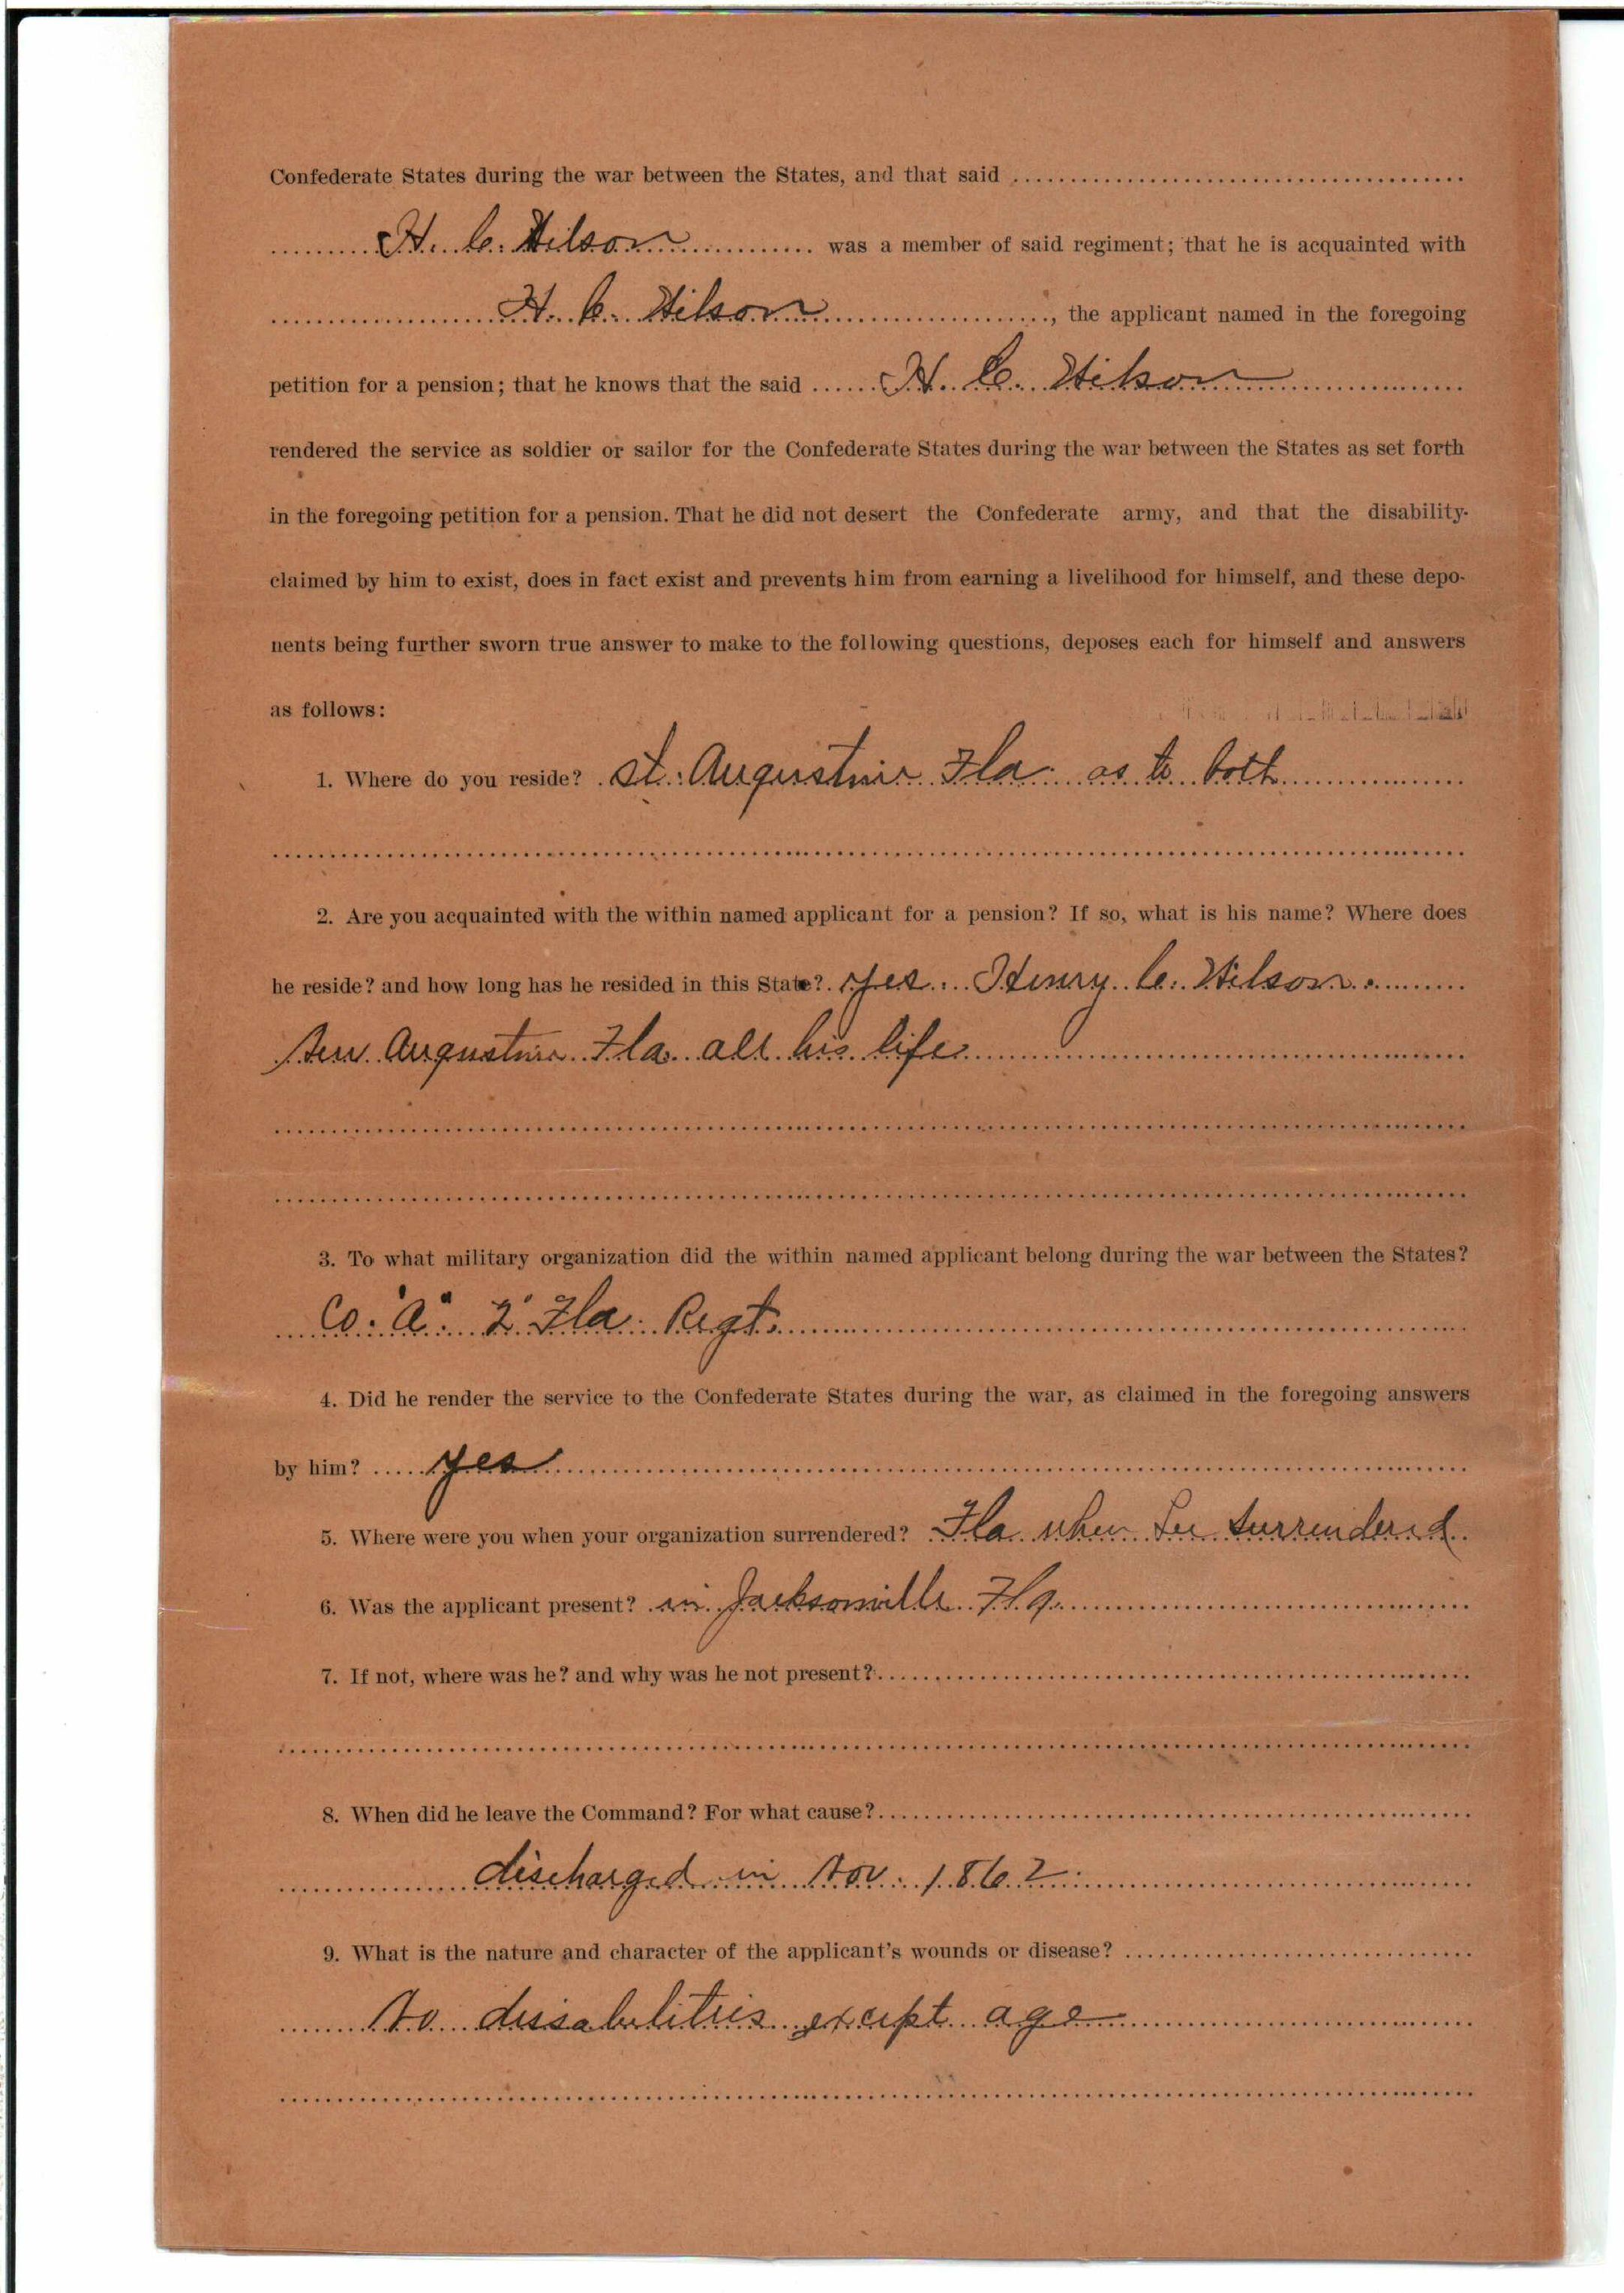 Confederate States during the war between the States, and that said
H. C. Wilson was a member of said regiment; that he is acquainted with
H. C. Wilson, the applicant named in the foregoing
petition for a pension; that he knows that the said H. C. Wilson
rendered the service as soldier or sailor for the Confederate States during the war between the States as set forth
in the foregoing petition for a pension. That he did not desert the Confederate army, and that the disability
claimed by him to exist, does in fact exist and prevents him from earning a livelihood for himself, and these depo-
nents being further sworn true answer to make to the following questions, deposes each for himself and answers
as follows:
1. Where do you reside? St. Augustine Fla. as to both
2. Are you acquainted with the within named applicant for a pension? If so, what is his name? Where does
he reside? and how long has he resided in this State? Yes. Henry C. Wilson.
New Augustine Fla. all his life
3. To what military organization did the within named applicant belong during the war between the States?
Co. "A" 2" Fla. Regt.
4. Did he render the service to the Confederate States during the war, as claimed in the foregoing answers
by him? yes
5. Where were you when your organization surrendered? Fla when Lee surrendered.
6. Was the applicant present? in Jacksonville Fla.
7. If not, where was he? and why was he not present?
8. When did he leave the Command? For what cause?
discharged in Nov. 1862.
9. What is the nature and character of the applicant's wounds or disease?
No dissabilities except age